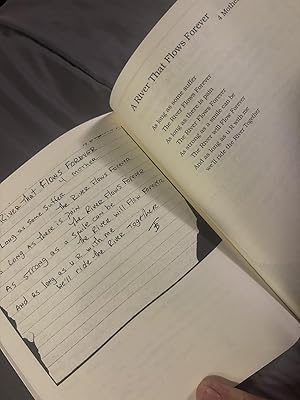 River That Flows Forever
4 mother
Long as some suffer
the River Flows Foreva
Long as there is pain
the River Flows Forever
As strong as a smile can be
the River will Flow Foreva
And as long as U R with me
we'll ride the River Together
A River That Flows Forever
4 Mothe
As long as some suffer
The River Flows Forever
As long as there is pain
The River Flows Forever
As strong as a smile can be
The River will Flow Forever
And as long as u R with me
we'll ride the River Together